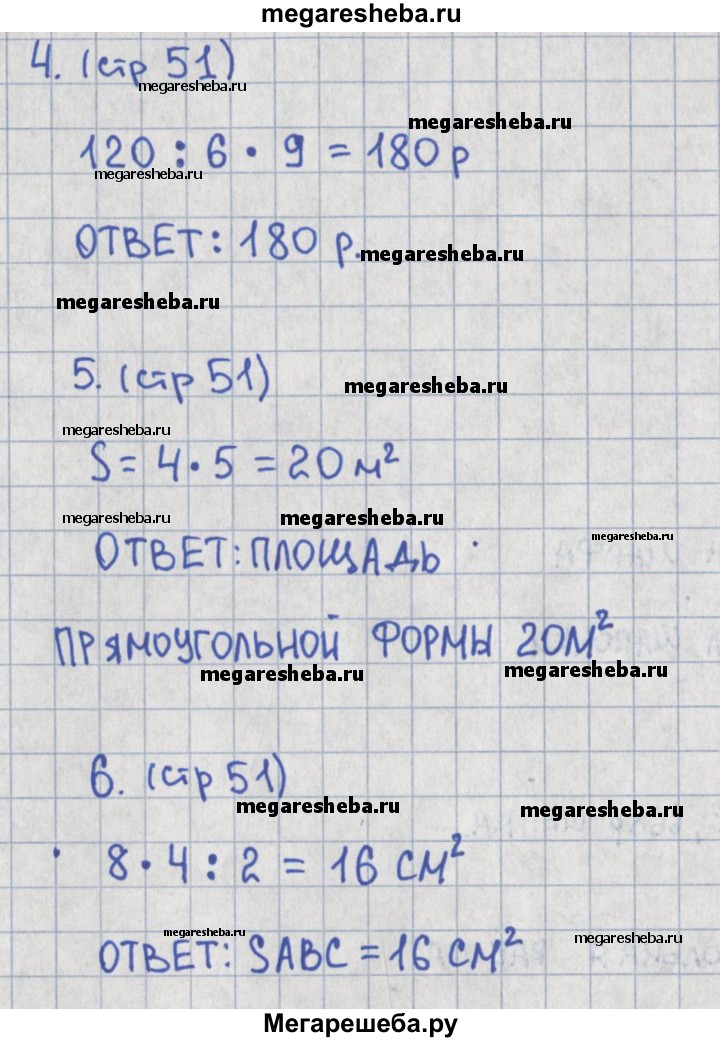 megaresheba.ru
4. (стр 51)
megaresheba.ru
megaresheba.ru
120 : 6 • 9 = 180 р
megaresheba.ru
ОТВЕТ: 180 р.
megaresheba.ru
megaresheba.ru
5. (стр 51)
megaresheba.ru
megaresheba.ru
S = 4 • 5 = 20 м²
megaresheba.ru
megaresheba.ru
megaresheba.ru
ОТВЕТ: ПЛОЩАДЬ
ПРЯМОУГОЛЬНОЙ ФОРМЫ 20М²
megaresheba.ru
megaresheba.ru
6. (стр 51)
megaresheba.ru
megaresheba.ru
8 • 4 : 2 = 16 СМ²
megaresheba.ru
megaresheba.ru
ОТВЕТ: SABC = 16 СМ²
Мегарешеба.ру